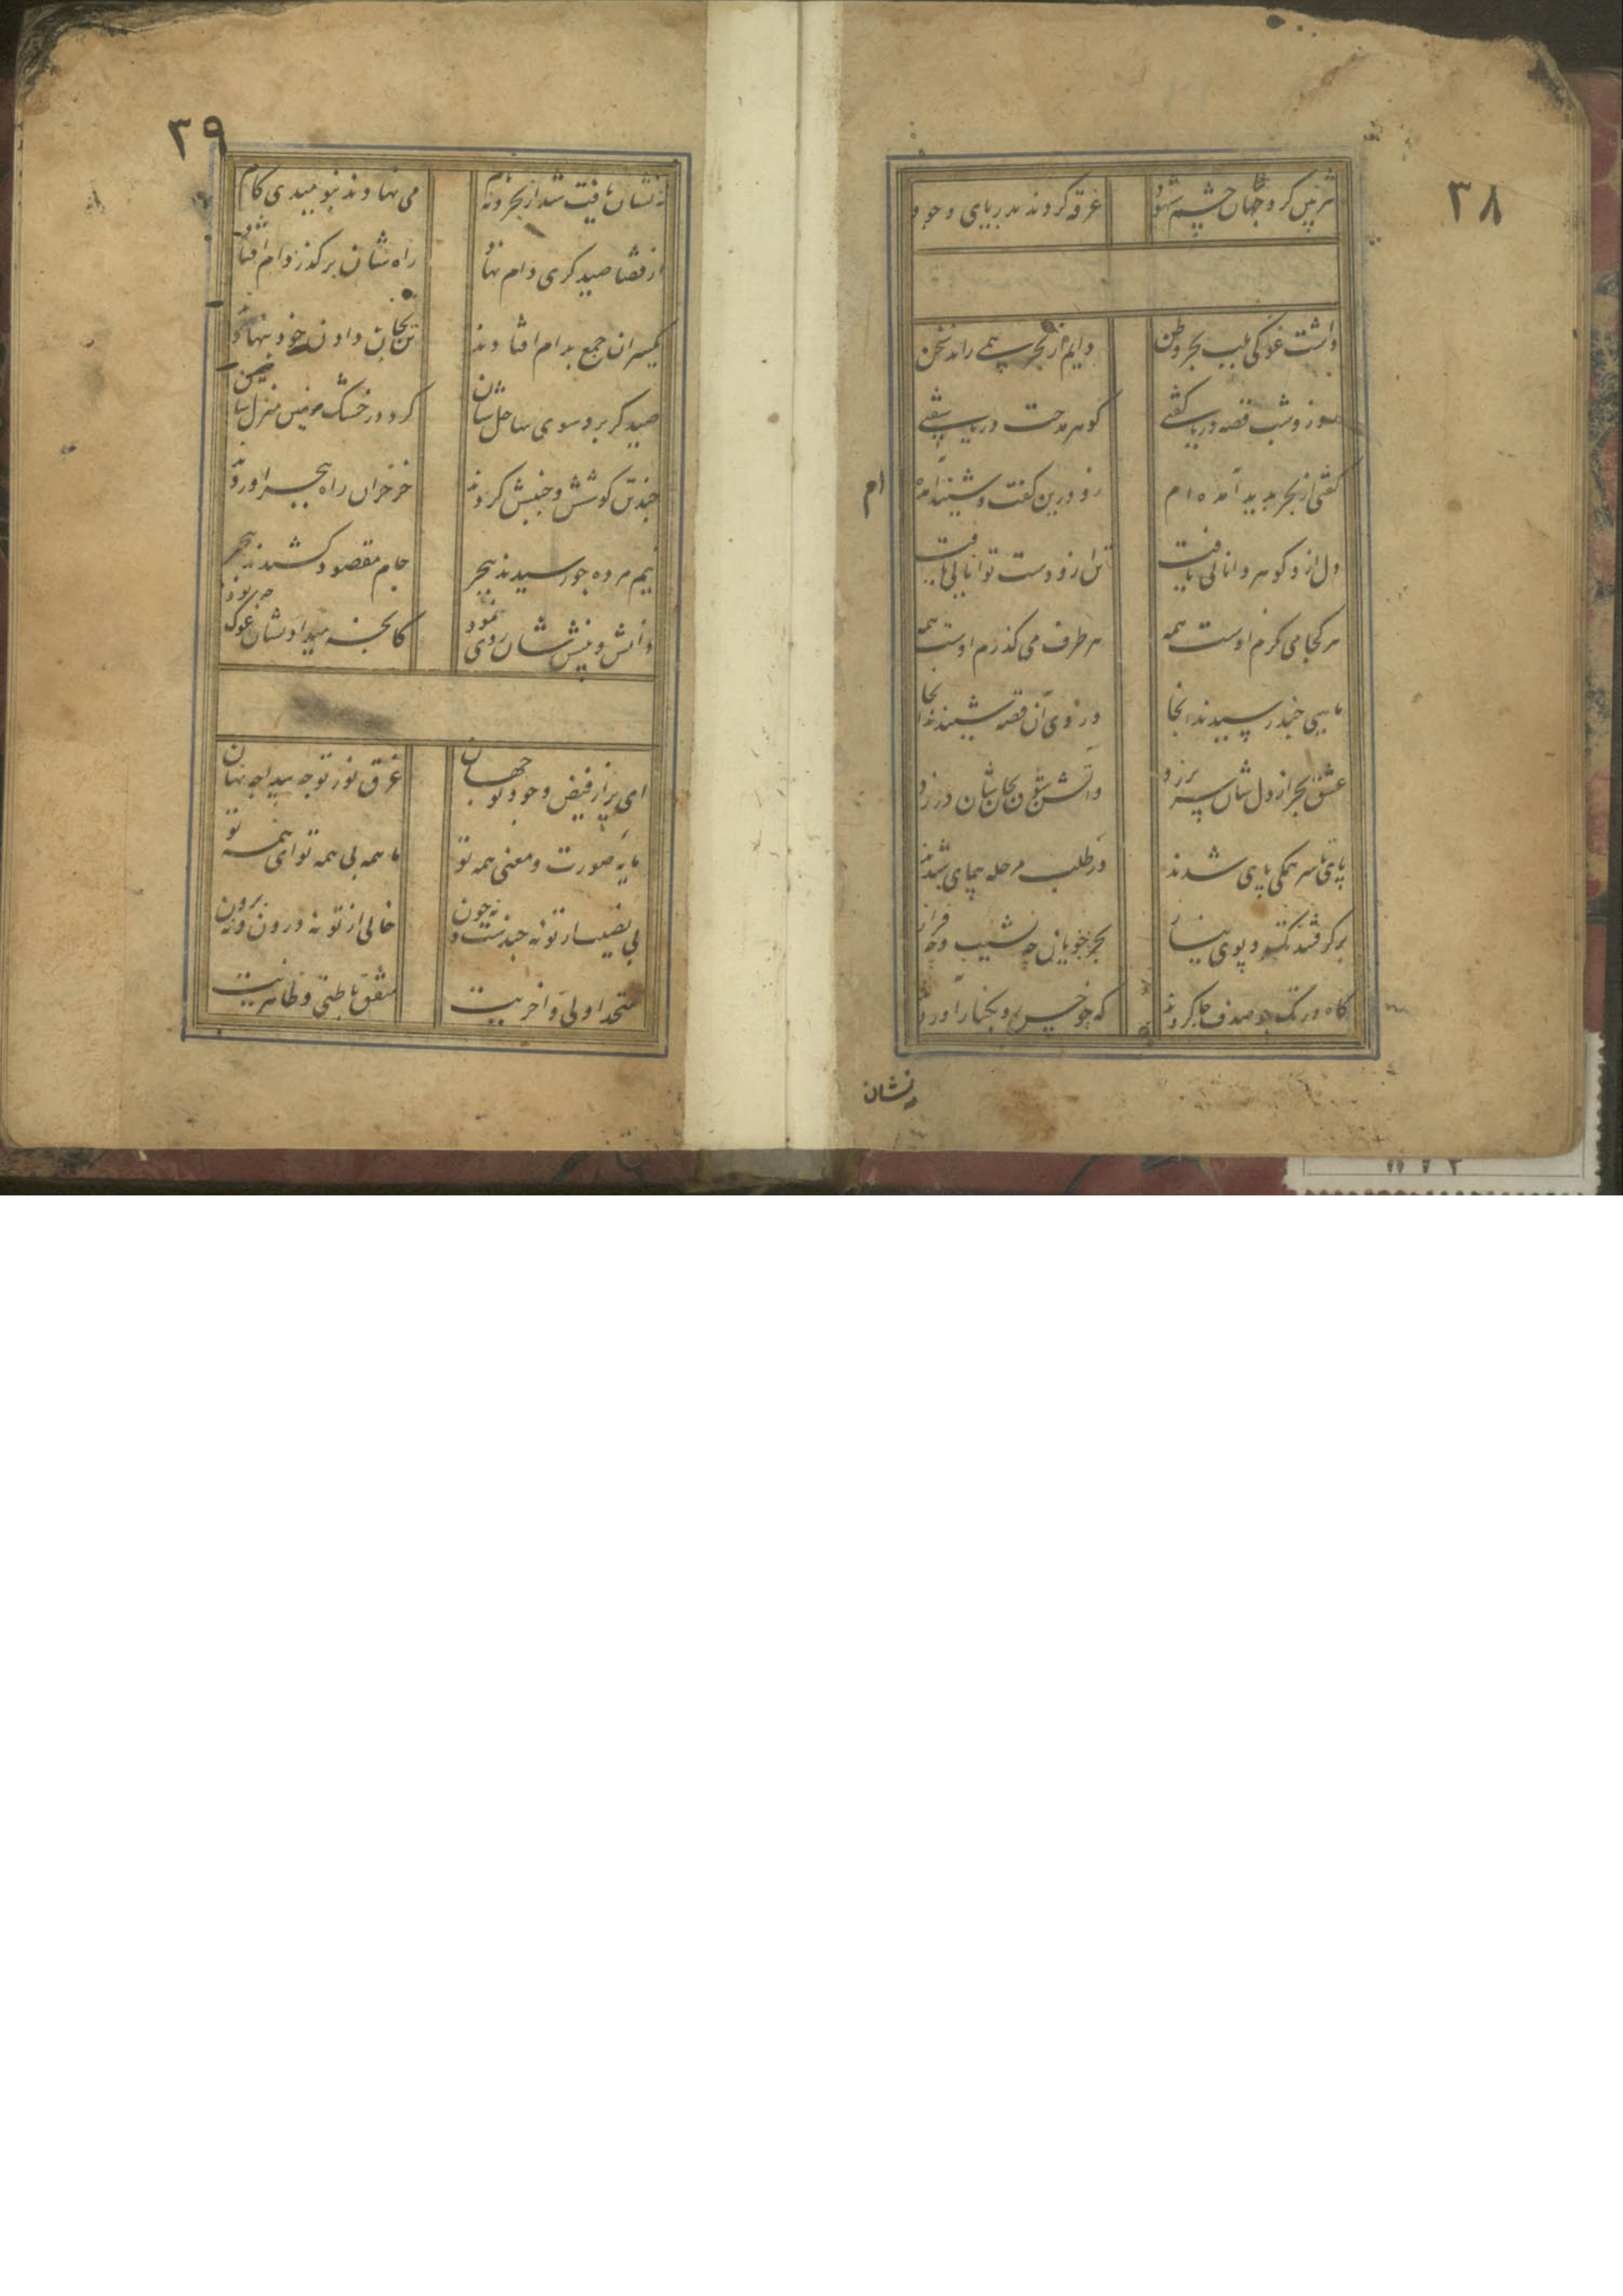 ۳۸
شرمین کرد جهان چشم شهود غرقه کردند بدریای وجود
داشت غوکی بلب بحر وطن دایم از بحر همی راند سخن
روز و شب قصه دریا گفتی گوهر مدحت دریا سفتی
گفتی از بحر پدید آمده ام زو درین گفت و شنید آمده ام
دل ازو گوهر دانائی یافت تن ازو دست توانائی یافت
هر کجا می نگرم اوست همه هر طرف می گذرم اوست همه
ماهیی چند رسیدند آنجا وز وی آن قصه شنیدند آنجا
عشق بحر از دل شان سر بر زد واتش شوق بجان شان در زد
پای تا سر همگی پای شدند در طلب مرحله پیمای شدند
برگرفتند تک و پوی نیاز بحر جویان چه نشیب و چه فراز
گاه در تک چو صدف جا کردند گه چو خس رو بکنار آوردند
نشان
۳۹
نه نشان یافت شد از بحر و نه نام می نهادند بنومیدی گام
از قضا صیدگری دام نهاد راه شان بر گذر دام افتاد
یکسر آن جمع بدام افتادند تن بجان دادن خود بنهادند
صیدگر برد سوی ساحل شان کرد در خشک زمین منزل شان
چند تن کوشش و جنبش کردند خز خزان راه ببحر آوردند
نیم مرده چو رسیدند ببحر جام مقصود کشیدند ببحر
دانش و بینش شان روی نمود کانچه میداد نشان غوک چه بود
ای پر از فیض وجود تو جهان غرق نور تو چه پیدا چه نهان
مایه صورت و معنی همه تو با همه بی همه تو ای همه تو
بی نصیب از تو نه چندست و نه چون خالی از تو نه درون و نه برون
متحد اولی و آخریت متفق باطنی و ظاهریت